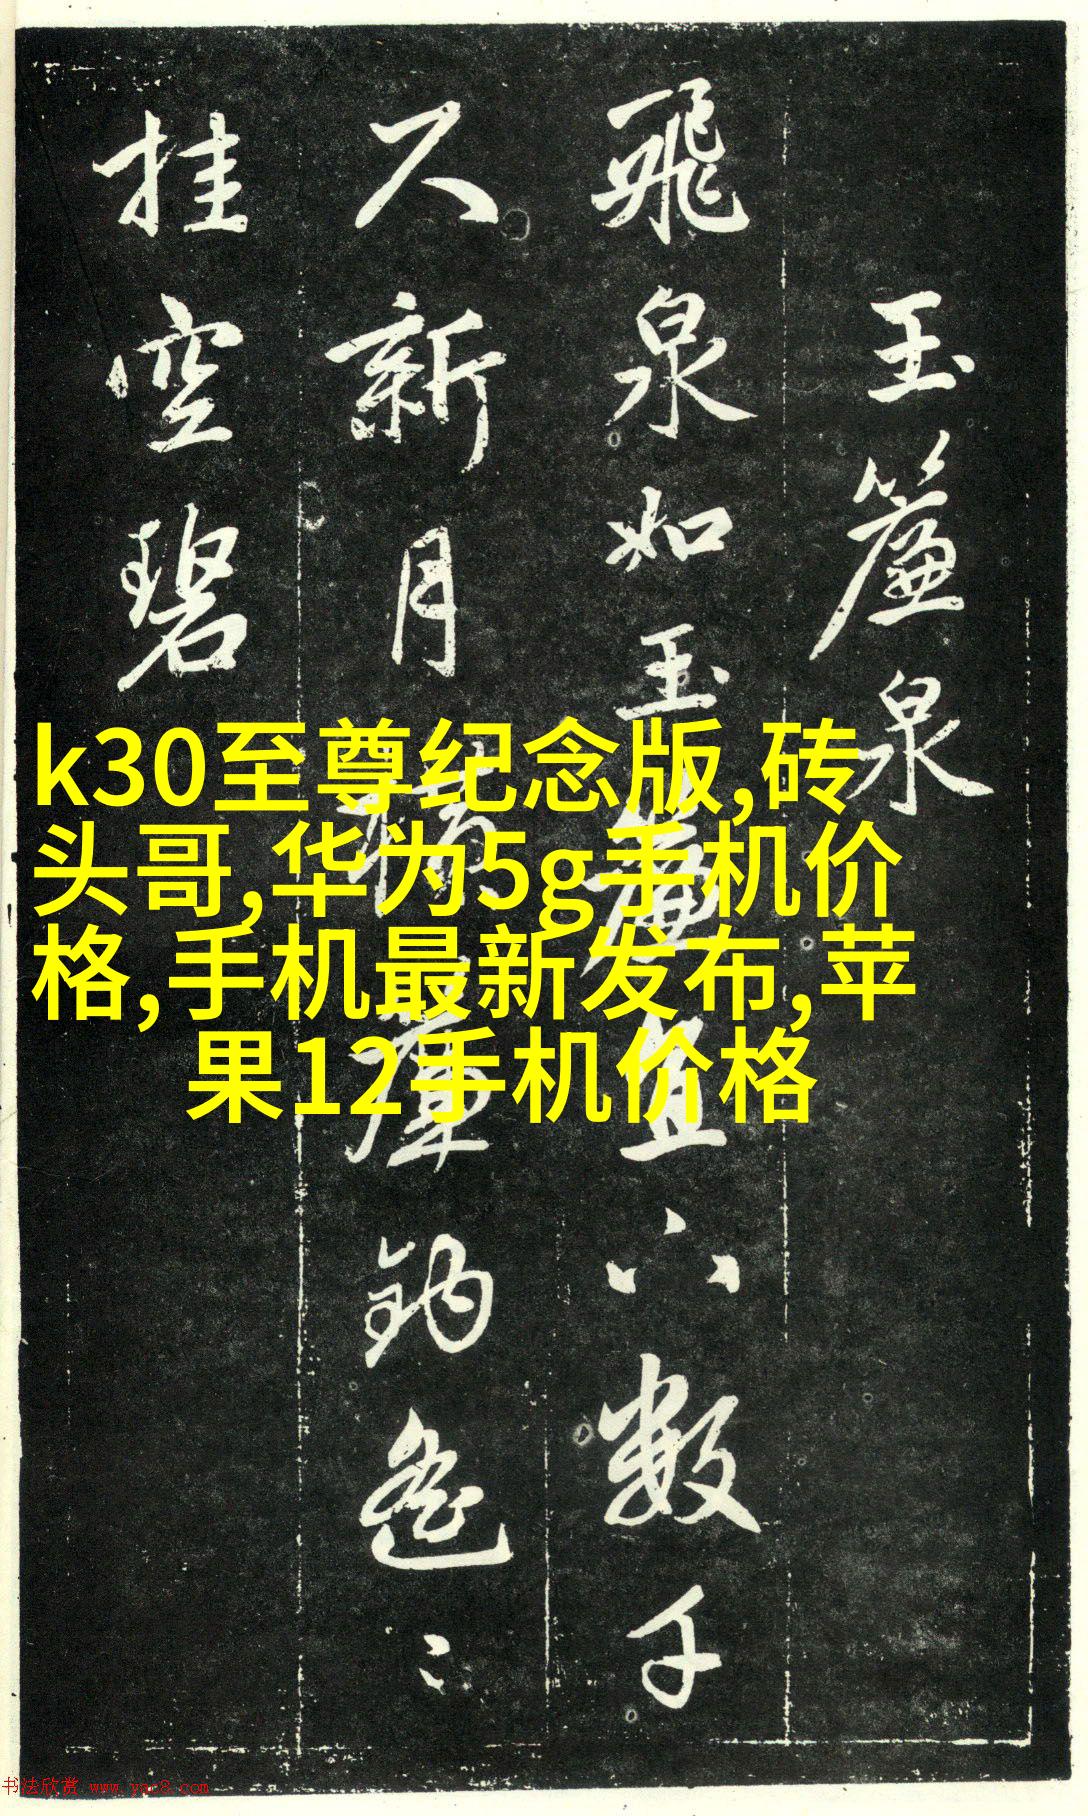 玉簾泉
飛泉如玉簾直下數千
尺新月橫簾鈎遙〻
挂空碧
k30至尊纪念版,砖
头哥,华为5g手机价
格,手机最新发布,苹
果12手机价格
书法欣赏 www.yac8.com